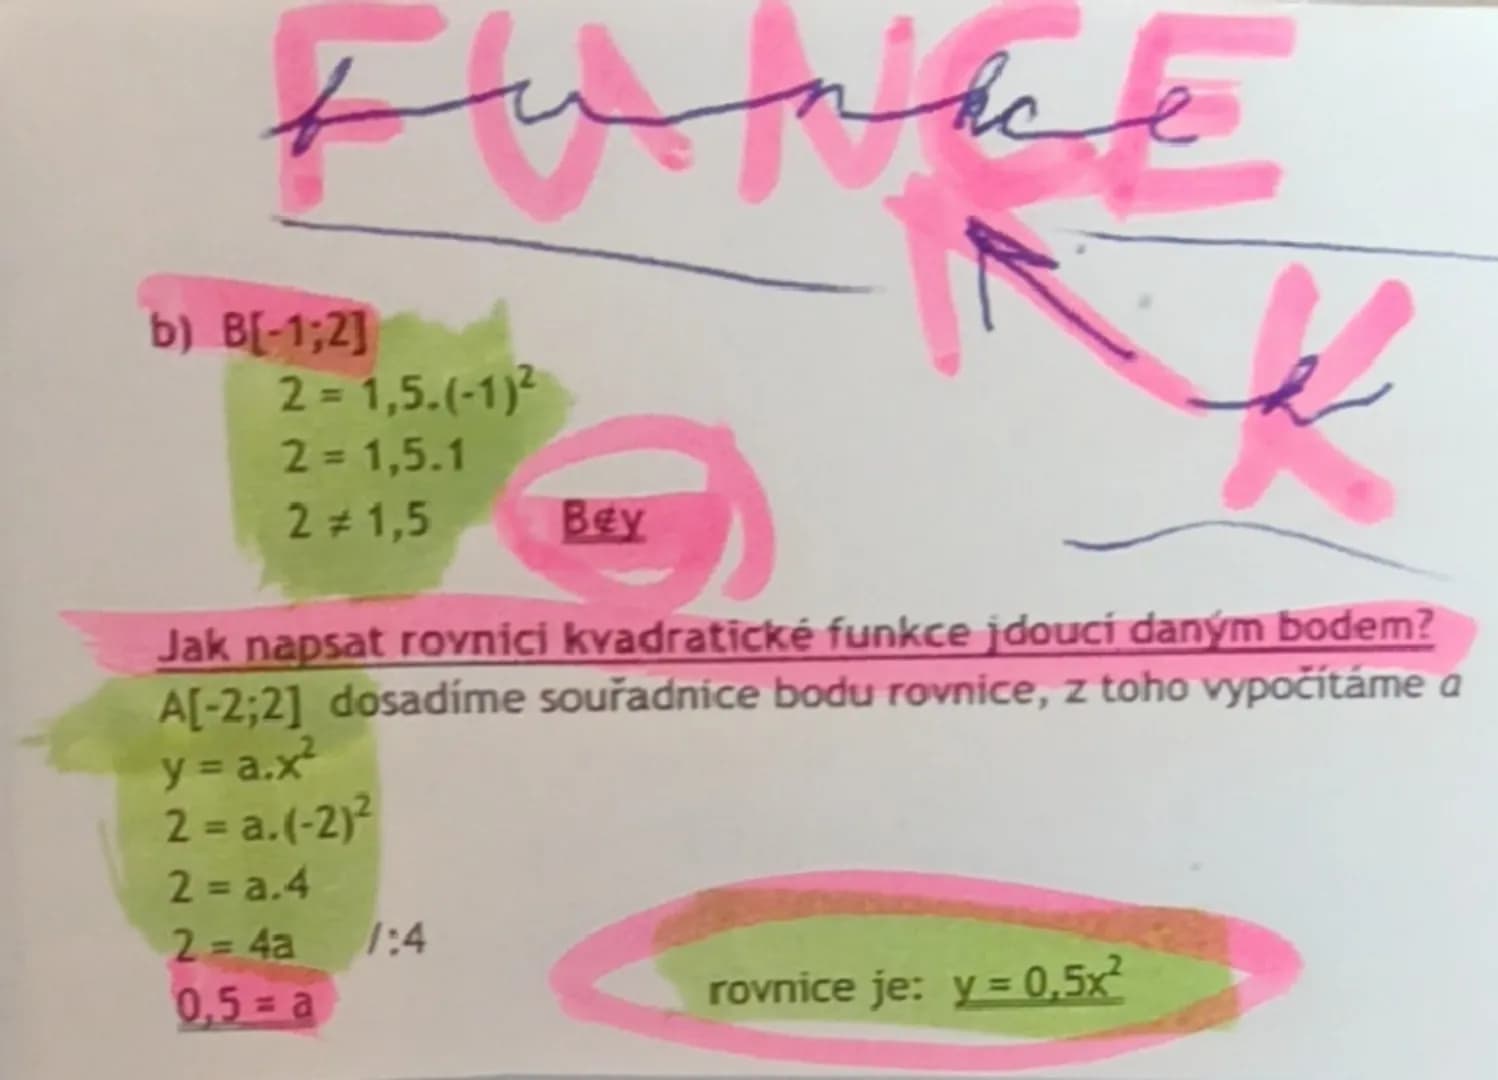 FUNCE
funkce
K
K
k
b) B[-1;2]
2 = 1,5.(-1)²
2 = 1,5.1
2 ≠ 1,5 B∉y
Jak napsat rovnici kvadratické funkce jdoucí daným bodem?
A[-2;2] dosadíme souřadnice bodu rovnice, z toho vypočítáme a
y = a.x²
2 = a.(-2)²
2 = a.4
2 = 4a /:4
0,5 = a rovnice je: y = 0,5x²